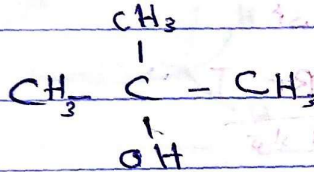 CH3
|
CH3 - C - CH3
|
OH